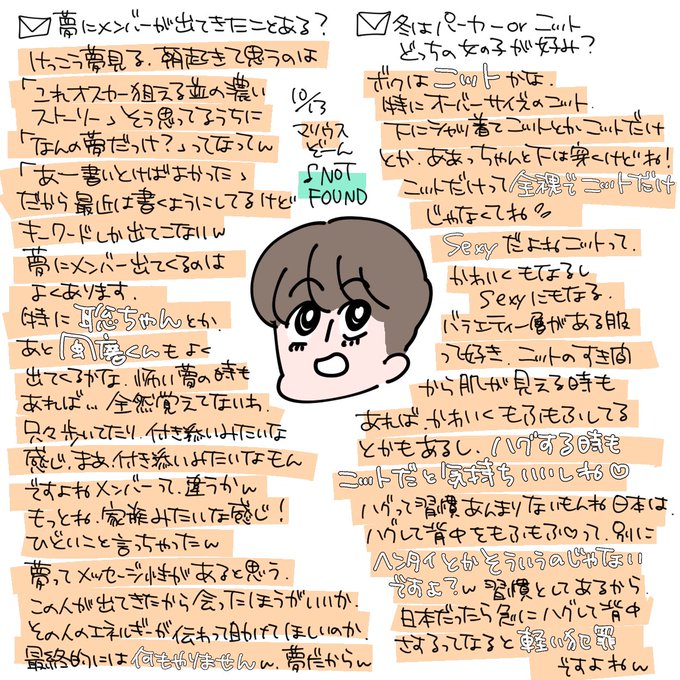 夢にメンバーが出てきたことある?
けっこう夢見る、朝起きて思うのは
「これオスカー狙える並の濃い
ストーリー」とう思ってるうちに
「なんの夢だっけ?」ってなってw
「あー書いとけばよかった」
だから最近は書くようにしてるけど
キーワードしか出てこないw
夢にメンバー出てくるのは
よくあります.
特に聡ちゃんとか、
あと風磨くんもよく
出てくるかな、怖い夢の時も
あれば… 全然覚えてないわ.
只々歩いてたり、付き添いみたいな
感じ、まあ、付き添いみたいなもん
ですよねメンバーって、違うかw
もっとね、家族みたいな感じ!
ひどいこと言っちゃったw
夢ってメッセージ性があると思う.
この人が出てきたから会ったほうがいいか.
その人のエネルギーが伝わって助けてほしいのか.
最終的には何もやりませんw、夢だからw
10/13
マリウス
どーん
♪NOT
FOUND
冬はパーカーorニット
どっちの女の子が好み?
ボクはニットかな.
特にオーバーサイズのニット.
下にシャツ着てニットとかニットだけ
とか、ああっちゃんと下は穿くけどね!
ニットだけって全裸でニットだけ
じゃなくてね
Sexyだよねニットって.
かわいくもなるし
Sexyにもなる.
バラエティー層がある服
って好き、ニットのすき間
から肌が見える時も
あれば、かわいくもふもふしてる
とかもあるし、ハグする時も
ニットだと気持ちいいしね♡
ハグって習慣あんまりないもんね日本は、
ハグして背中をもふもふ♡って、別に
ヘンタイとかそういうのじゃない
ですよ?w 習慣としてあるから.
日本だったら急にハグして背中
さするってなると軽い犯罪
ですよねw